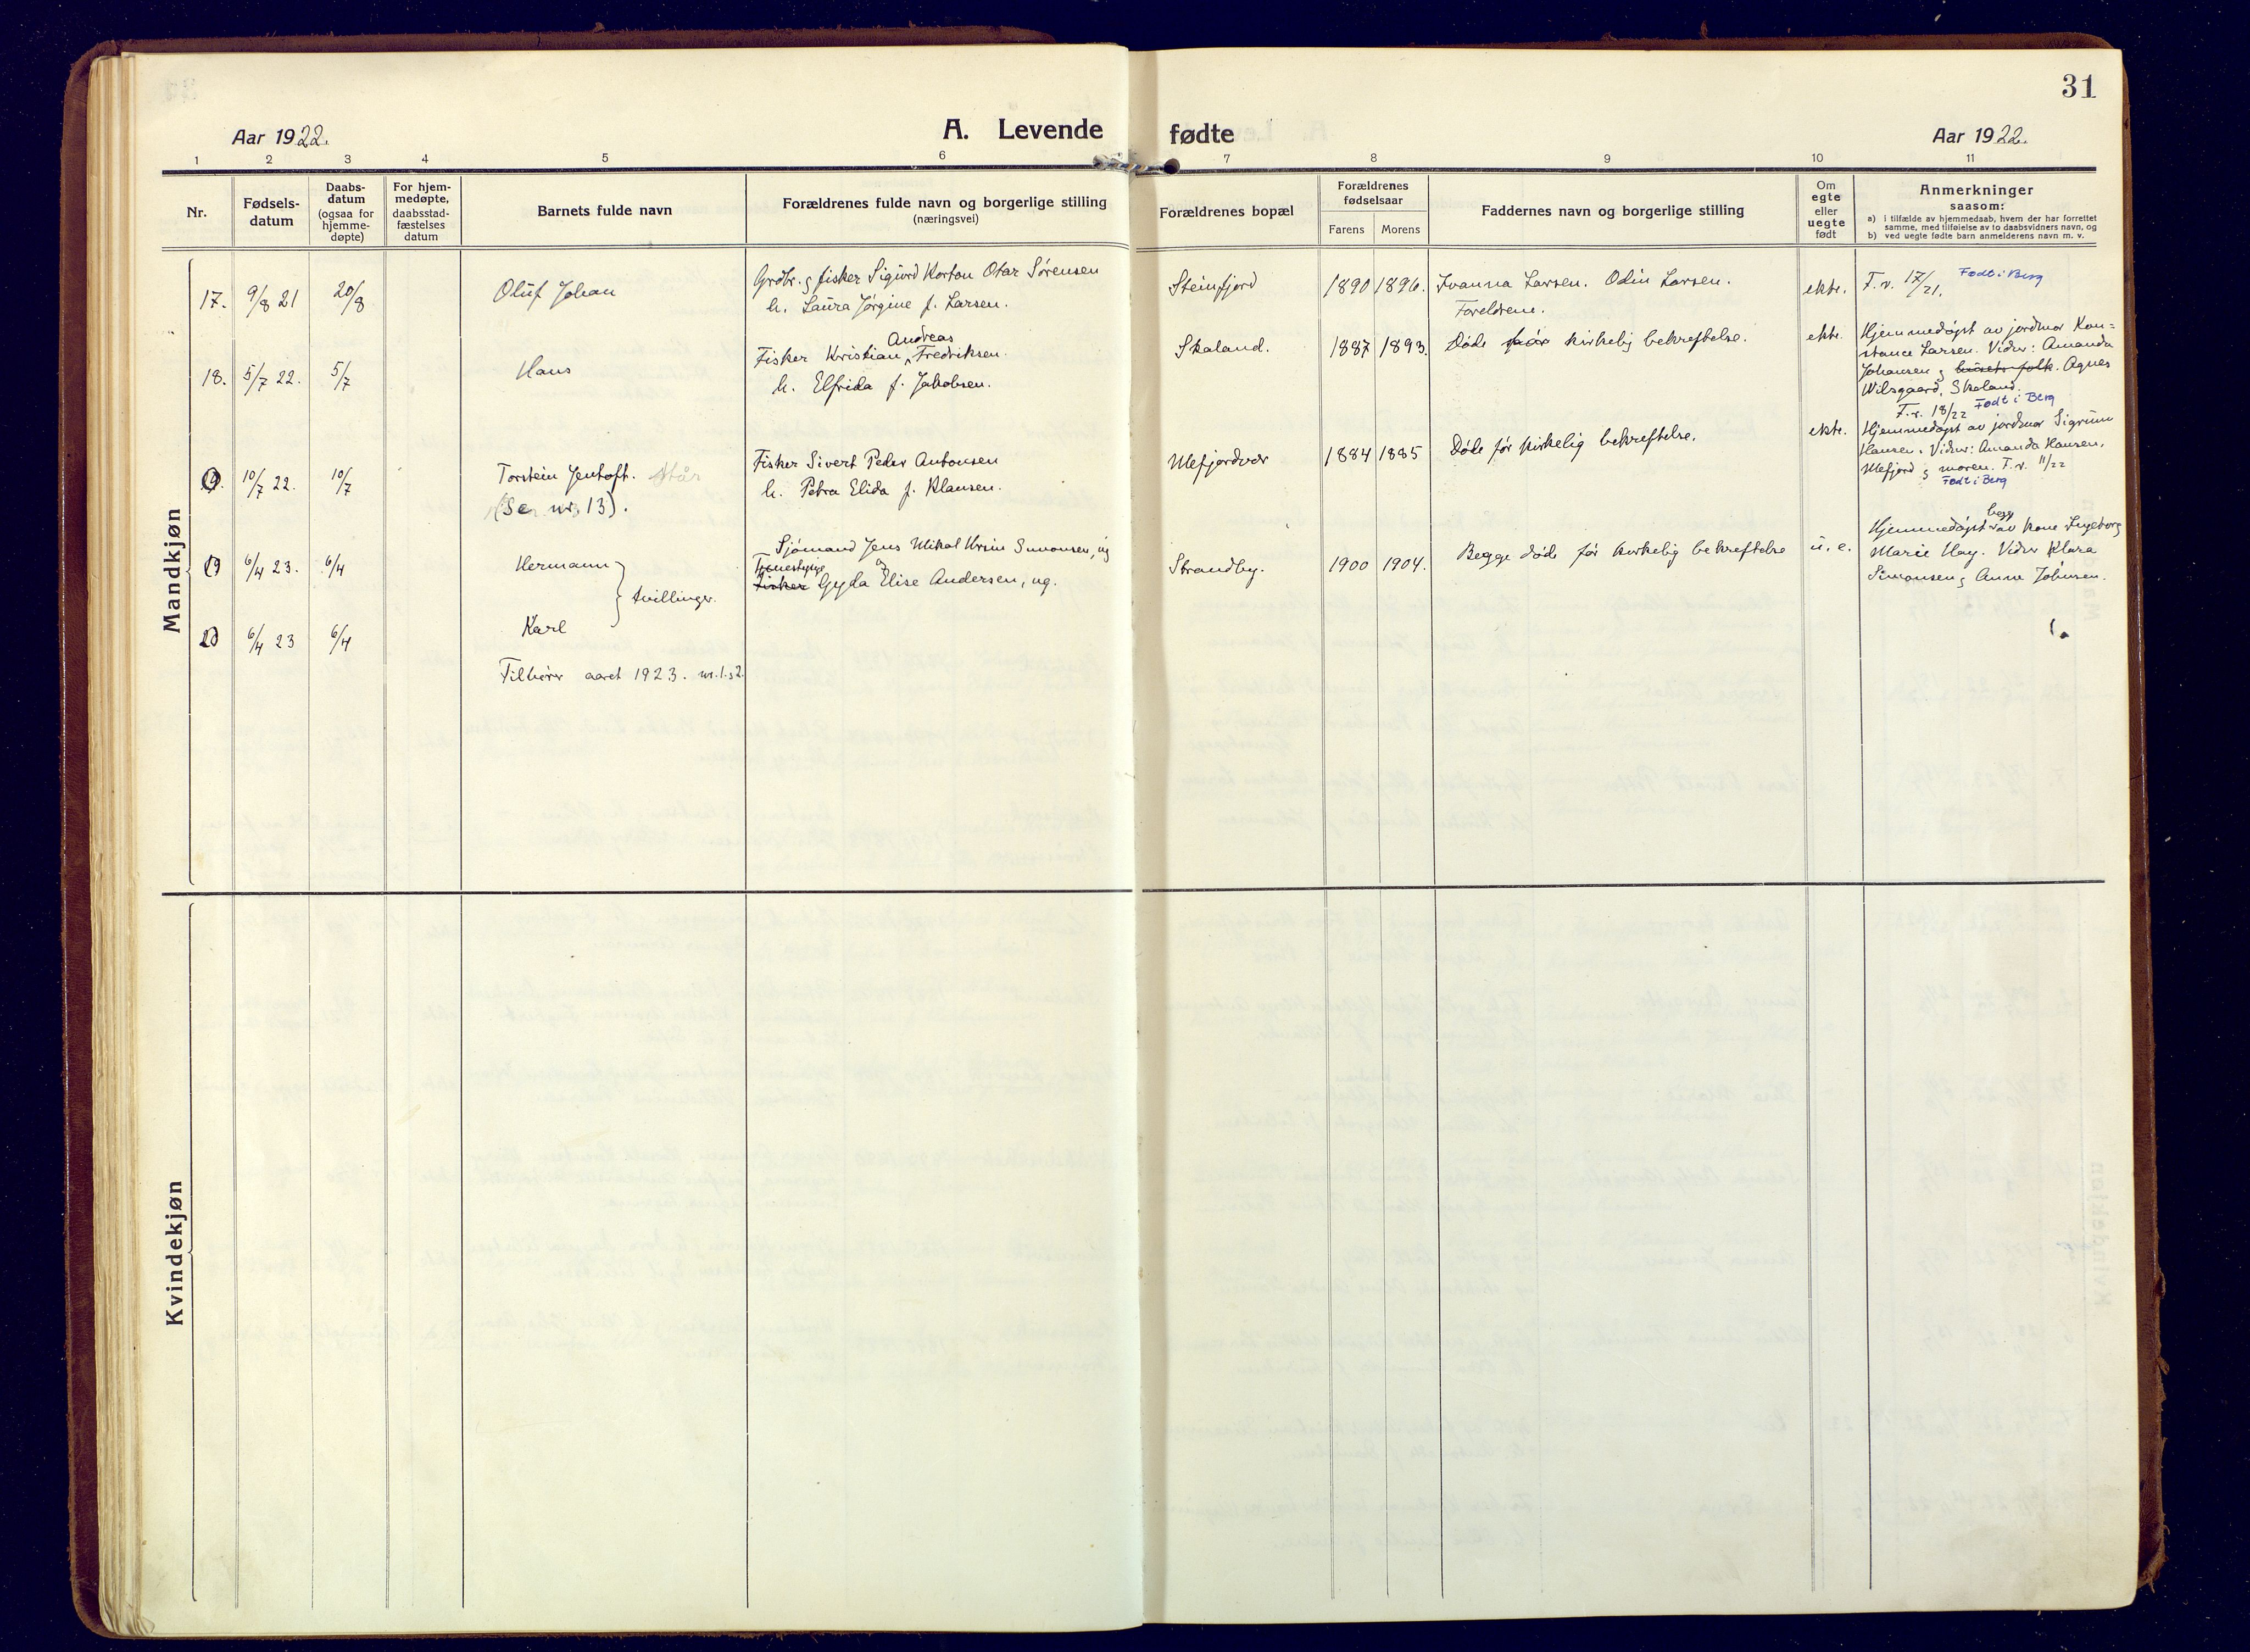 31
Aar 1922.
A. Levende fødte
Aar 1922.
1 2 3 4 5 6 7 8 9 10 11
Nr.
Fødsels-
datum
Daabs-
datum
(ogsaa for
hjemme-
døpte)
For hjem-
medøpte,
daabsstad-
fæstelses
datum
Barnets fulde navn
Forældrenes fulde navn og borgerlige stilling
(næringsvei)
Forældrenes bopæl
Forældrenes
fødselsaar
Farens Morens
Faddernes navn og borgerlige stilling
Om
egte
eller
uegte
født
Anmerkninger
saasom:
a) i tilfælde av hjemmedaab, hvem der har forrettet
samme, med tilføielse av to daabsvidners navn, og
b) ved uegte fødte barn anmelderens navn m. v.
Mandkjøn
17. 9/8 21 20/8 Oluf Johan
Grdbr. og fisker Sigurd Korton Otar Sørensen
h. Laura Jørgine f. Larsen.
Steinfjord 1890 1896.
Ivanna Larsen. Odin Larsen.
Foreldrene.
ekte. T.v. 17/21. Født i Berg
18. 5/7 22. 5/7 Hans
Andreas
Fisker Kristian Fredriksen.
h. Elfrida f. Jakobsen.
Skaland. 1887 1893. Døde før kirkelig bekreftelse. ekte.
Hjemmedøpt av jordmor Kon=
stance Larsen. Vidner: Amanda
Johansen og husets folk. Agnes
Wilsgaard, Skaland.
T.v. 18/22 Født i Berg
19. 10/7 22. 10/7 Torstein Jentoft.
(Se nr. 13).
Fisker Sivert Peder Antonsen
h. Petra Elida f. Klausen.
Mefjordvær 1884 1885 Døde før kirkelig bekreftelse. ekte.
Hjemmedøpt av jordmor Sigrunn
Hansen. Vidner: Amanda Hansen,
Mefjord og moren. T.v. 11/22
Født i Berg
19 6/4 23. 6/4 Hermann
tvillinger.
Sjømand Jens Mikal Simonsen, ug
og
Fisker Gyda Elise Andersen, ug.
Strandby. 1900 1904. Begge døde før kirkelig bekreftelse u. e.
begg
Hjemmedøpt av kone Ingeborg
Marie Hay. Vidner Klara
Simonsen og Anna Johnsen.
20 6/4 23 6/4 Karl
Tilhører aaret 1923. nr. 1 og 2.
Kvindekjøn